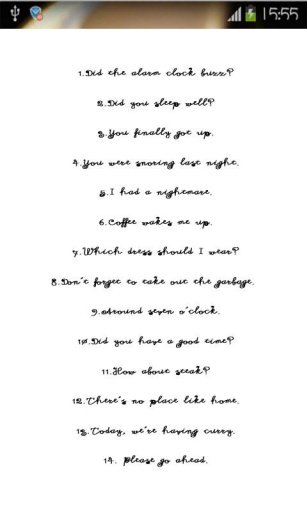 15:55
1.Did the alarm clock buzz?
2.Did you sleep well?
3.You finally got up.
4.You were snoring last night.
5.I had a nightmare.
6.Coffee wakes me up.
7.Which dress should I wear?
8.Don't forget to take out the garbage.
9.Around seven o'clock.
10.Did you have a good time?
11.How about steak?
12.There's no place like home.
13.Today, we're having curry.
14. Please go ahead.